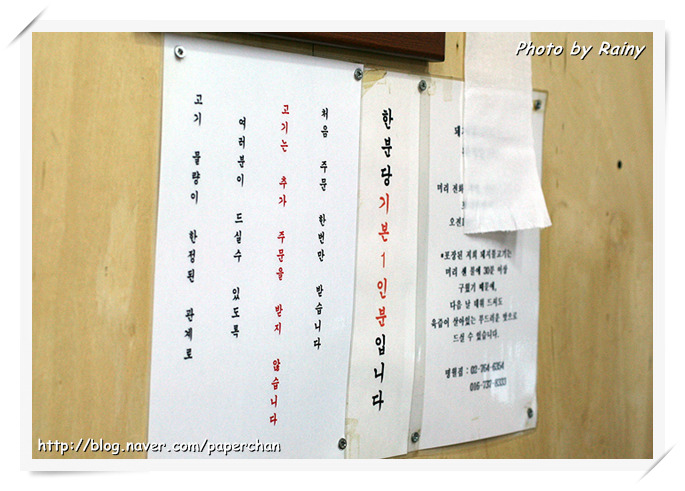 Photo by Rainy
고기 물량이 한정된 관계로
여러분이 드실수 있도록
고기는 추가 주문을 받지 않습니다
처음 주문 한번만 받습니다
한분당 기본 1인분입니다
미리 전화
*포장된 저희 돼지불고기는
미리 센 불에 30분 이상
구웠기 때문에,
다음 날 데워 드셔도
육즙이 살아있는 부드러운 맛으로
드실 수 있습니다.
명월집 : 02-764-6354
016-737-8333
http://blog.naver.com/paperchan